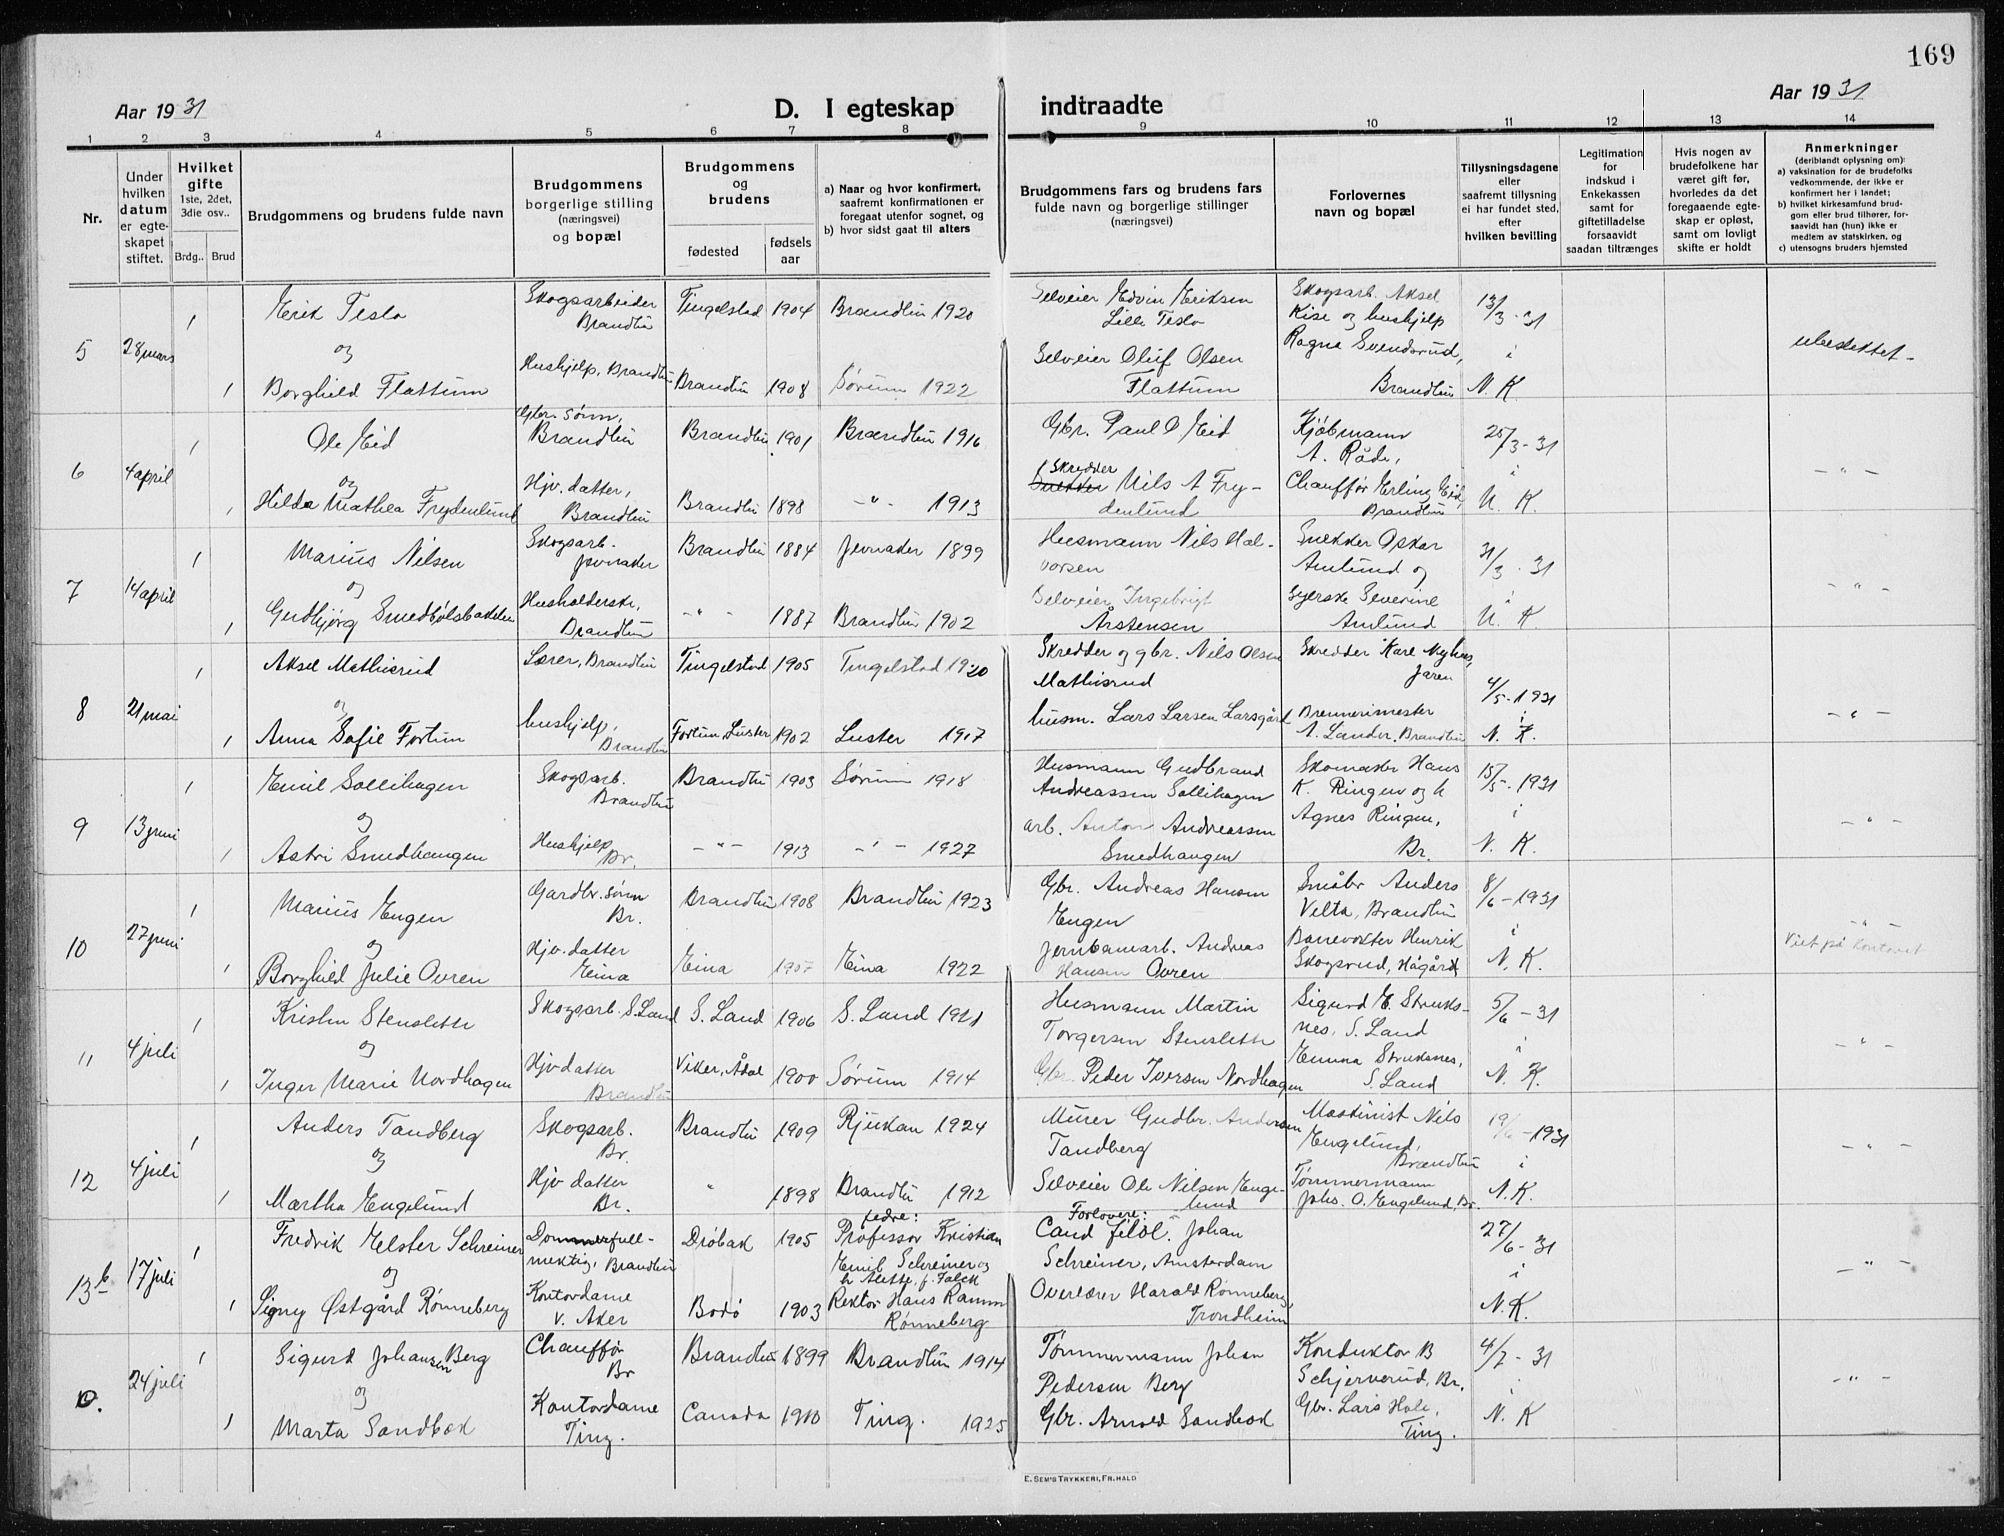 169
Aar 1931
D. I egteskap indtraadte
Aar 1931
1 2 3 4 5 6 7 8 9 10 11 12 13 14
Nr.
Under hvilken datum er egteskapet stiftet.
Hvilket gifte 1ste, 2det, 3die osv..
Brdg.. Brud
Brudgommens og brudens fulde navn
Brudgommens borgerlige stilling (næringsvei) og bopæl
Brudgommens og brudens
fødested
fødsels aar
a) Naar og hvor konfirmert, saafremt konfirmationen er foregaat utenfor sognet, og
b) hvor sidst gaat til alters
Brudgommens fars og brudens fars fulde navn og borgerlige stillinger (næringsvei)
Forlovernes navn og bopæl
Tillysningsdagene eller saafremt tillysning ei har fundet sted, efter hvilken bevilling
Legitimation for indskud i Enkekassen samt for giftetilladelse forsaavidt saadan tiltrænges
Hvis nogen av brudefolkene har været gift før, hvorledes da det foregaaende egteskap er opløst, samt om lovligt skifte er holdt
Anmerkninger (deriblandt oplysning om):
a) vaksination for de brudefolks vedkommende, der ikke er konfirmert her i landet;
b) hvilket kirkesamfund brudgom eller brud tilhører, forsaavidt han (hun) ikke er medlem av statskirken, og
c) utensogns bruders hjemsted
5 28 mars 1 Erik Teslo Skogsarbeider Brandbu Tingelstad 1904 Brandbu 1920 Selveier Edvin Eriksen Lille Teslo Skogsarb. Aksel Kise og hushjelp 13/3-31 ubeslektet
og
1 Borghild Flattum Hushjelp, Brandbu Brandbu 1908 Sørum 1922 Selveier Oluf Olsen Flattum Ragna Svendsrud, Brandbu i N. K.
6 4 april 1 Ole Eid Gbr. sønn, Brandbu Brandbu 1901 Brandbu 1916 Gbr. Paul O Eid Kjøbmann A. Råde, 25/3-31 -"-
og
1 Hilda Mathea Frydenlund Hjv. datter, Brandbu Brandbu 1898 -"- 1913 Skredder Nils A Frydenlund Chauffør Erling Eid, Brandbu i N. K.
7 14 april 1 Marius Nilsen Skogsarb. Jevnaker Brandbu 1884 Jevnaker 1899 Husmann Nils Halvorsen Snekker Oskar Amlund og 31/3-31 -"-
og
1 Gudbjørg Smedbølsbakken Husholderske, Brandbu -"- 1887 Brandbu 1902 Selveier Ingebrigt Arstensen Syerske Severine Amlund i N. K.
8 21 mai 1 Aksel Mathisrud Lærer, Brandbu Tingelstad 1905 Tingelstad 1920 Skredder og gbr. Nils Olsen Mathisrud Skredder Karl Myhre, Jaren 4/5-1931 -"-
og
1 Anna Sofie Fortun hushjelp, Brandbu Fortun, Luster 1902 Luster 1917 husm. Lars Larsen Larsgård Brennerimester A. Lander, Brandbu i N. K.
9 13 juni 1 Emil Sollihagen Skogsarb. Brandbu Brandbu 1903 Sørum 1918 Husmann Gudbrand Andreassen Sollihagen Skomaker Hans K. Ringen og h 15/5-1931 -"-
og
1 Astri Smedhaugen Hushjelp Br. -"- 1913 -"- 1927 arb. Anton Andreassen Smedhaugen Agnes Ringen, Br. i N. K.
10 27 juni 1 Marius Engen Gardbr. sønn Br. Brandbu 1908 Brandbu 1923 Gbr. Andreas Hansen Engen Småbr Anders Velta, Brandbu 8/6-1931 -"-
og
1 Borghild Julie Ovren Hjv. datter Eina Eina 1907 Eina 1922 Jernbanearb. Andreas Hansen Ovren Banevokter Henrik Skogsrud, Hågår i N. K. Viet på kontoret
11 4 juli 1 Kristen Stenslette Skogsarb. S. Land S. Land 1906 S. Land 1921 Husmann Martin Torgersen Stenslette Sigurd E. Struksnes, S. Land 5/6-31 -"-
og
1 Inger Marie Nordhagen Hjv datter Brandbu Viker, Ådal 1900 Sørum 1914 Gbr. Peder Iversen Nordhagen Emma Struksnes, S. Land i N. K.
12 4 juli 1 Anders Tandberg Skogsarb. Br. Brandbu 1909 Rjukan 1924 Murer Gudbr. Andersen Tandberg Maskinist Nils Engelund, Brandbu 19/6-1931 -"-
og
1 Martha Engelund Hjv datter Br. " 1898 Brandbu 1912 Selveier Ole Nilsen Engelund Tømmermann Johs. O. Engelund, Br. i N. K.
13 b 17 juli 1 Fredrik Elster Schreiner Dommerfullmektig, Brandbu Drøbak 1905 fedre: Professor Kristian Emil Schreiner og h Alette, f. Falck Forlovere: Cand filol. Johan Schreiner, Amsterdam 27/6-31 -"-
og
1 Signy Østgård Rønneberg Kontordame v. Aker Bodø 1903 Rektor Hans Ramm Rønneberg Overlærer Harald Rønneberg, Trondheim i N. K.
24 juli 1 Sigurd Johansen Berg Chauffør Br Brandbu 1899 Brandbu 1914 Tømmermann Johan Pedersen Berg Konduktør B Schjerverud, Br. 4/7-31 -"-
og
1 Marta Sandbæk Kontordame Ting. Canada 1910 Ting. 1925 Gbr. Arnold Sandbæk Gbr. Lars Hole, Ting. N. K
E. SEM'S TRYKKERI, FR. HALD